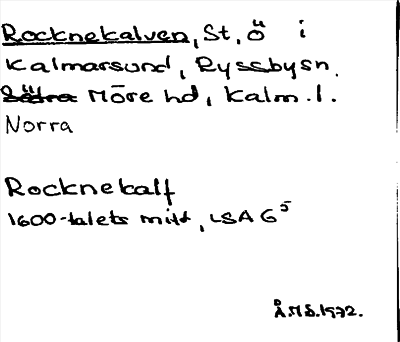 Rocknekalven, St, ö i
Kalmarsund, Ryssbysn.
Södra Möre hd, Kalm. l.
Norra
Rocknekalf
1600-talets mitt, LSA G5
Å.M.S. 1972.